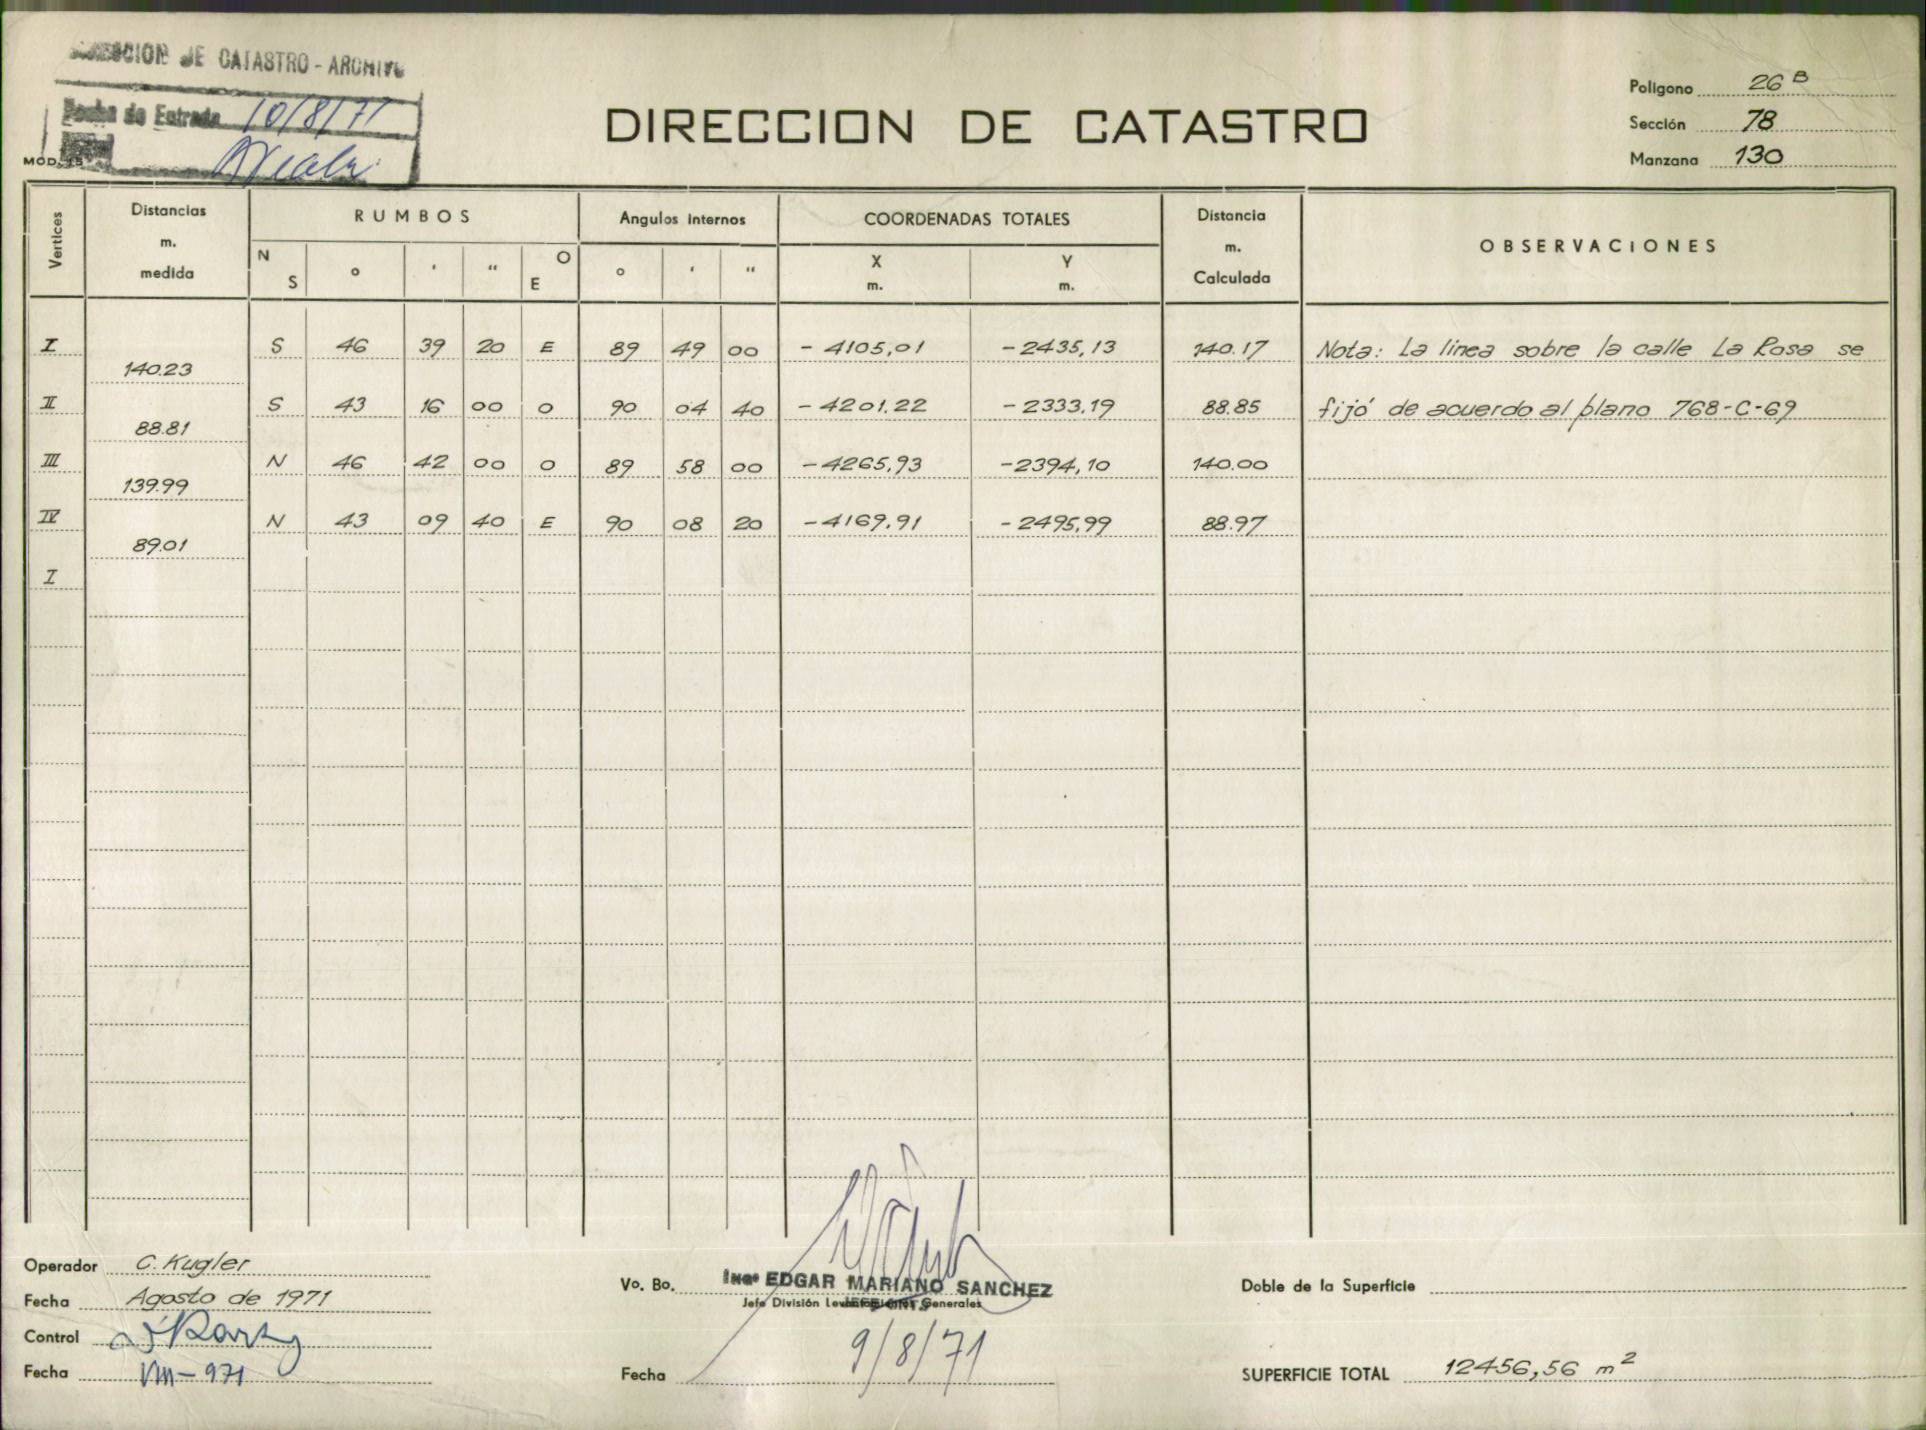 DIRECCION DE CATASTRO - ARCHIVO
Fecha de Entrada 10/8/71
MOD. 15
DIRECCION DE CATASTRO
Polígono 26 B
Sección 78
Manzana 130
Vertices
Distancias m. medida
RUMBOS
Angulos Internos
COORDENADAS TOTALES
Distancia m. Calculada
OBSERVACIONES
N S ° ' " O E ° ' " X m. Y m.
I S 46 39 20 E 89 49 00 -4105,01 -2435,13 140.17 Nota: La linea sobre la calle La Rosa se
140.23
II S 43 16 00 O 90 04 40 -4201.22 -2333,19 88.85 fijó de acuerdo al plano 768-C-69
88.81
III N 46 42 00 O 89 58 00 -4265,93 -2394,10 140.00
139.99
IV N 43 09 40 E 90 08 20 -4169.91 -2495,99 88.97
89.01
I
Operador C. Kugler
Fecha Agosto de 1971
Control
Fecha VIII-971
Vo. Bo. Ingº EDGAR MARIANO SANCHEZ
Jefe División Levantamientos Generales
Fecha 9/8/71
Doble de la Superficie
SUPERFICIE TOTAL 12456,56 m²